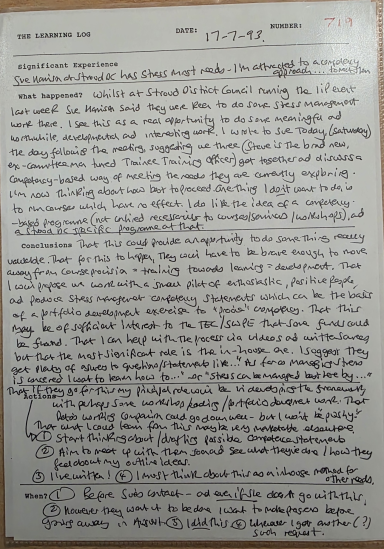 THE LEARNING LOG DATE: 17-7-93. NUMBER: 719
Significant Experience
Sue Hanson at Stroud DC has stress mgt needs - I'm attracted to a competency
approach... to meet them
What happened? Whilst at Stroud District Council running the IIP event
last week Sue Hanson said they were keen to do some stress management
work there. I see this as a real opportunity to do some meaningful and
worthwhile, developmental and interesting work. I wrote to Sue Today (Saturday)
the day following the meeting suggesting we three (Steve is the brand new,
ex-committee man tuned Trainee Training Officer) get together and discuss a
competency-based way of meeting the needs they are currently exploring.
I'm now thinking about how best to proceed. One thing I don't want to do is
to run courses which have no effect. I do like the idea of a competency-
-based programme (not linked necessarily to courses/seminars/workshops), and
a Stroud DC specific programme at that.
Conclusions That this could provide an opportunity to do something really
valuable. That for this to happen, they would have to be brave enough to move
away from course provision = training towards learning = development. That
I would propose we work with a small pilot of enthusiastic, positive people,
and produce stress management competency statements which can be the basis
of a portfolio development exercise to "prove" competency. That this
may be of sufficient interest to the TEC/ so that some funds could
be found. That I can help with the process via videos and written sources
but that the most significant role is the in-house one. I suggest they
get plenty of answers to question/statement like.. "As far as managing stress
is concerned I want to learn how to..." or "Stress can be managed better here by..."
That if they go for this my pivotal role would be in developing the framework
with perhaps some workshops/ /portfolio development work. That
working companion could go down well - but I won't be pushy!
That what I could learn from this may be very marketable elsewhere
Actions
① Start thinking about/drafting possible competence statements
② Aim to meet up with them soon and see what they are / how they
feel about my outline ideas.
③ I've written! ④ I must think about this as an inhouse method for
other needs.
When? ① Before Sue's contact - and even if she doesn't go with this,
② however they want to be done I want to make progress before
going away in August ③ I did this ④ Whenever I get another (?)
such request.